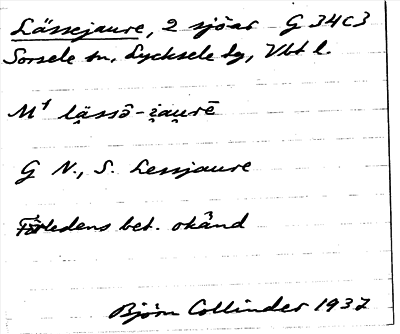 Lässejaure, 2 sjöar G 34c3
Sorsele sn, Lycksele lg, Vbt l.
M¹ lä̭ssō-i̭au̯rē
G N., S. Lessjaure
Förledens bet. okänd
Björn Collinder 1937